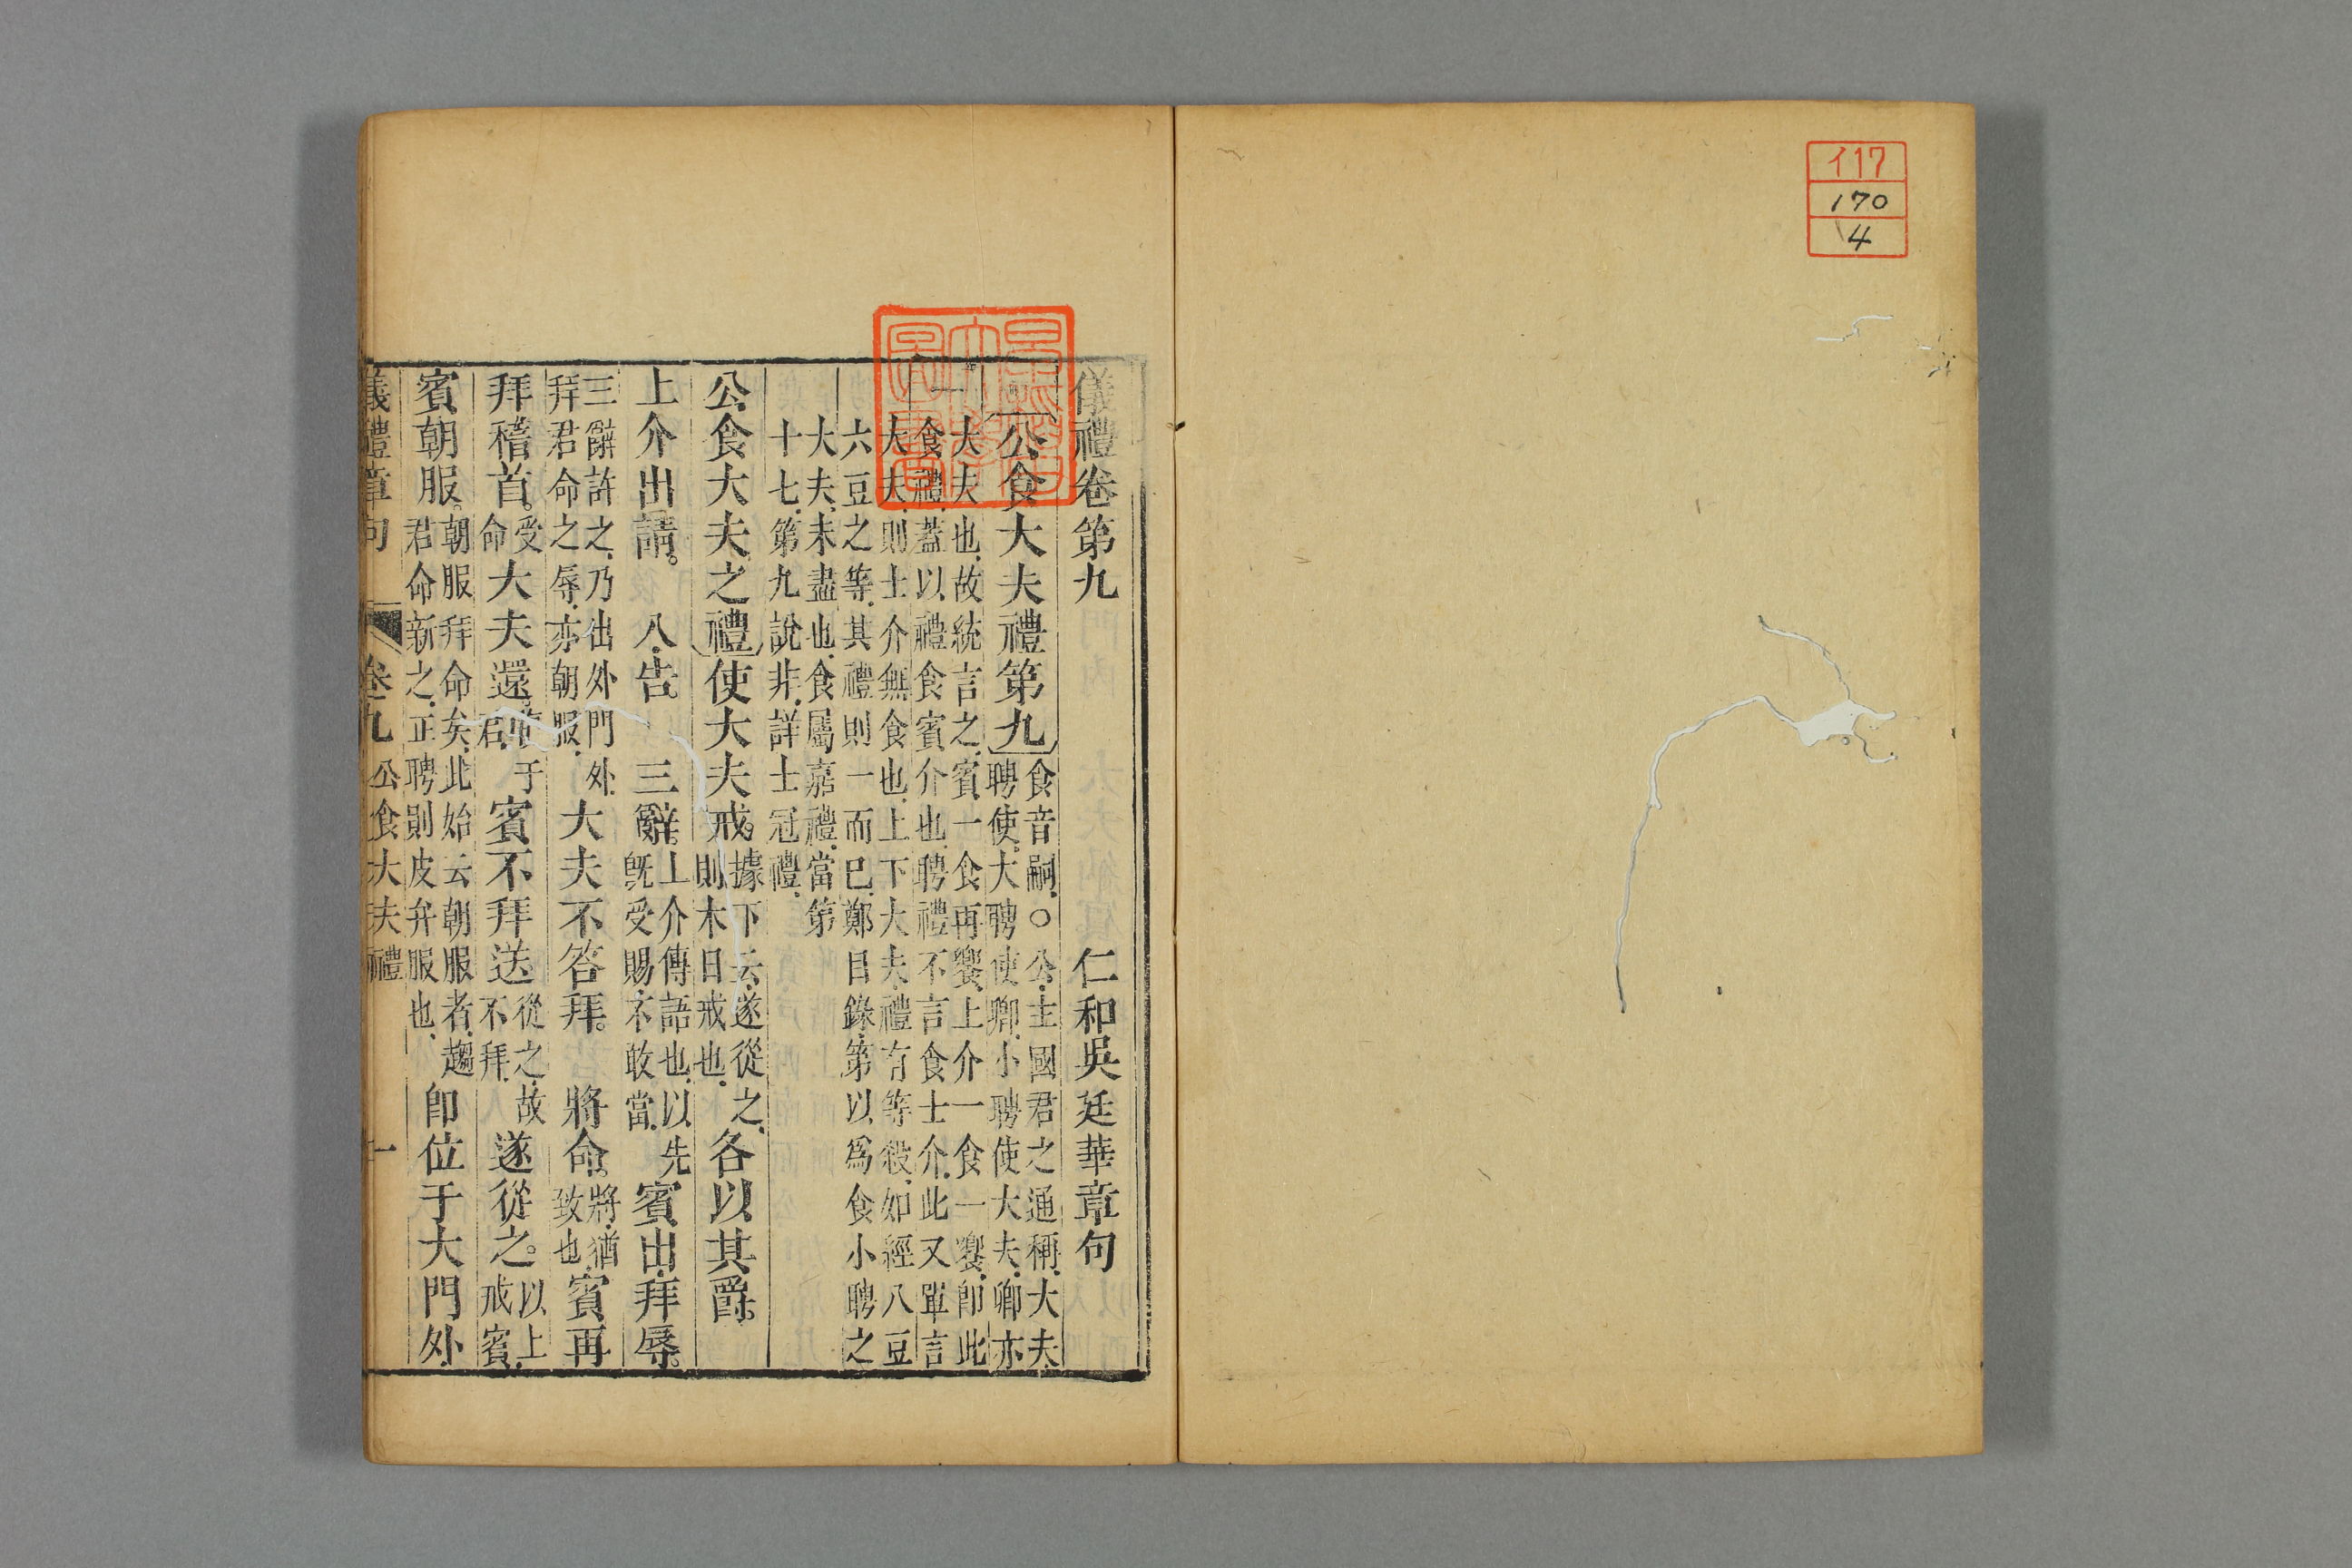 イ17
170
4
早稻田
大學
圖書
儀禮卷第九　仁和吳廷華章句
公食大夫禮第九
食音嗣、○公、主國君之通稱、大夫、
聘使、大聘使卿、小聘使大夫、卿亦
大夫也、故統言之、賓一食再饗、上介一食一饗、卽此
食禮、蓋以禮食賓介也、聘禮不言食士介、此又單言
大夫、則士介無食也、上下大夫、禮有等殺、如經八豆
六豆之等、其禮則一而已、鄭目錄、第以爲食小聘之
大夫、未盡也、食屬嘉禮、當第
十七、第九說非、詳士冠禮、
公食大夫之禮使大夫戒。
據下云、遂從之、
則本日戒也、
各以其爵。
上介出請。入告。三辭。
上介傳語也、以先
旣受賜、不敢當、
賓出、拜辱。
三辭許之、乃出外門外、
拜君命之辱、亦朝服、
大夫不答拜。將命。
將、猶
致也、
賓再
拜稽首。
受
命
大夫還。
于
君、
賓不拜送
從之、故
不拜、
遂從之。
以上
戒賓、
賓朝服。
朝服拜命矣、此始云朝服者、趨
君命新之、正聘則皮弁服也、
卽位于大門外、
儀禮章句　卷九　公食大夫禮　一